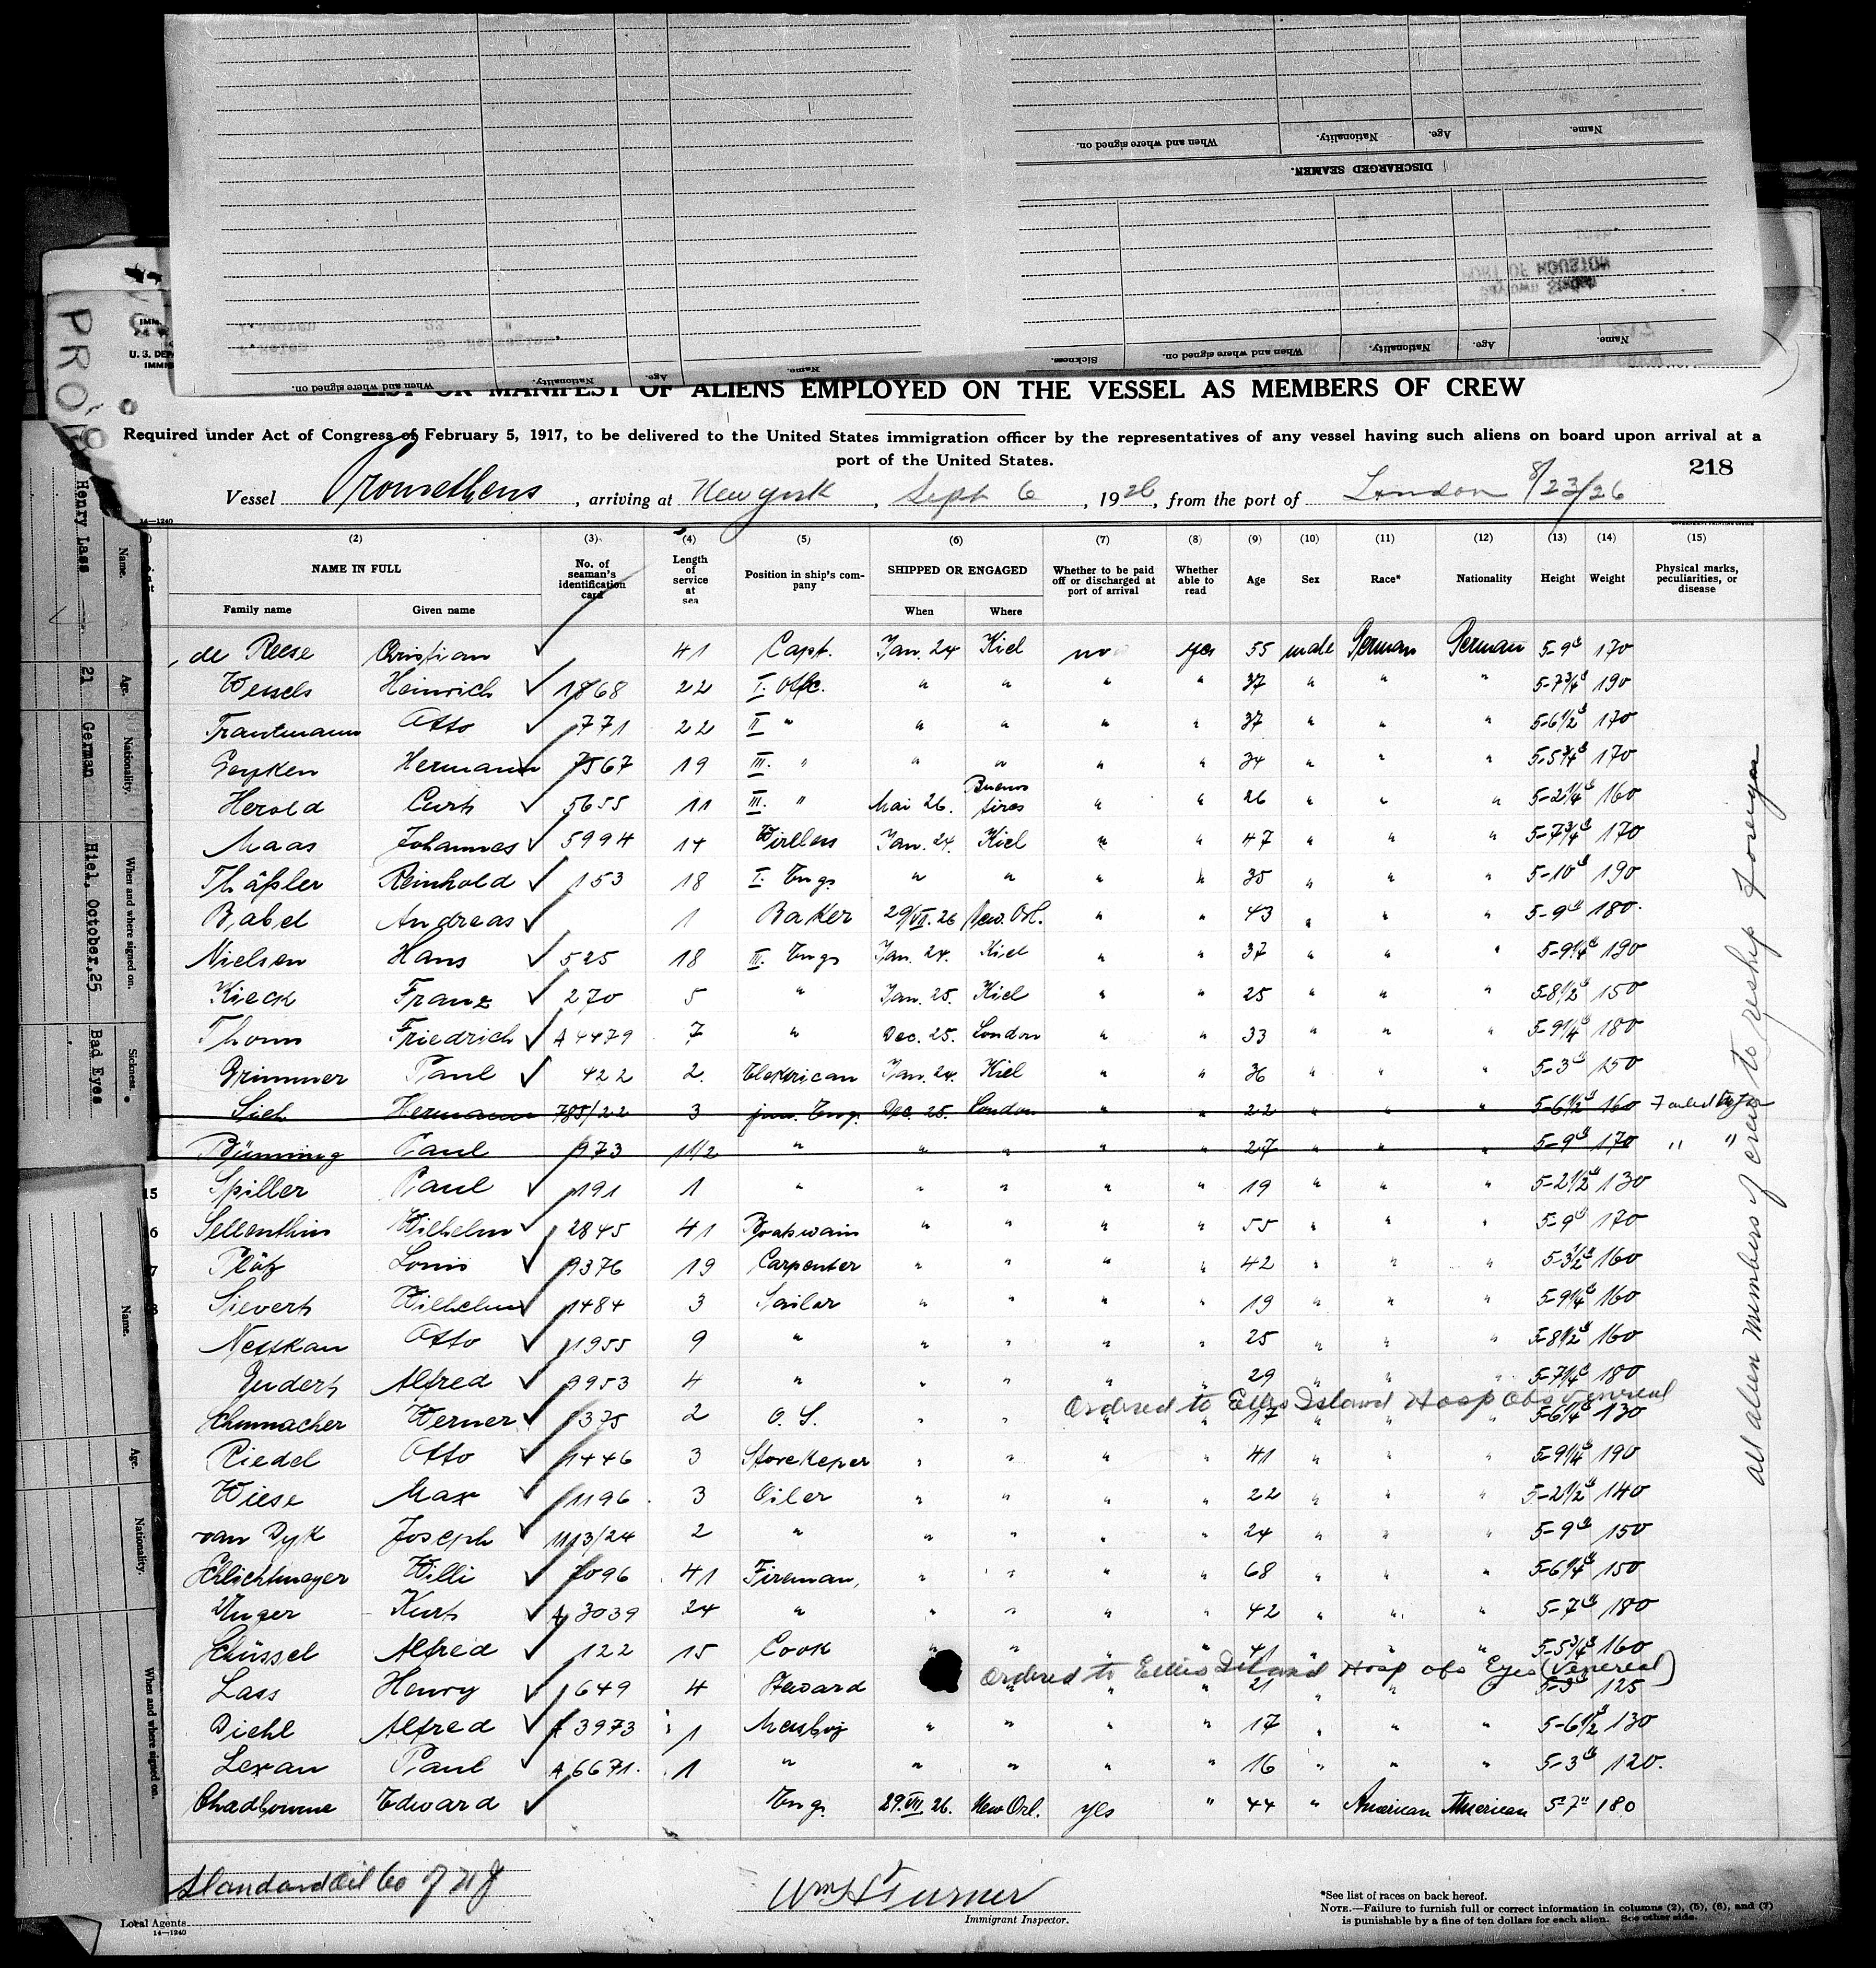 DISCHARGED SEAMEN.
Name. Age. Nationality. When and where signed on.
Name. Age. Nationality. When and where signed on. Sickness.
PORT OF HOUSTON
LIST OR MANIFEST OF ALIENS EMPLOYED ON THE VESSEL AS MEMBERS OF CREW
Required under Act of Congress of February 5, 1917, to be delivered to the United States immigration officer by the representatives of any vessel having such aliens on board upon arrival at a
port of the United States.
218
Vessel Prometheus, arriving at New York, Sept 6, 1926, from the port of London 8/23/26
14—1240
(2) (3) (4) (5) (6) (7) (8) (9) (10) (11) (12) (13) (14) (15)
NAME IN FULL No. of seaman's identification card Length of service at sea Position in ship's company SHIPPED OR ENGAGED Whether to be paid off or discharged at port of arrival Whether able to read Age Sex Race* Nationality Height Weight Physical marks, peculiarities, or disease
Family name Given name When Where
de Reese Christian 41 Capt. Jan. 24 Kiel no yes 55 male German German 5-9" 170
Wessels Heinrich 1868 22 I. Offc. " " " " 37 " " " 5-7¾" 190
Trautmann Otto 771 22 II " " " " " 37 " " " 5-6½" 170
Geyken Hermann 7567 19 III. " " " " " 34 " " " 5-5¾" 170
Herold Curt 5655 11 III. " Mai 26. Buenos Aires " " 26 " " " 5-2¼" 160
Maas Johannes 5994 14 Wireless Jan. 24. Kiel " " 47 " " " 5-7¾" 170
Thäßler Reinhold 153 18 I. Eng. " " " " 35 " " " 5-10" 190
Babel Andreas 1 Baker 29/VII. 26 New. Orl. " " 43 " " " 5-9" 180.
Nielsen Hans 525 18 III. Eng. Jan. 24. Kiel " " 37 " " " 5-9¼" 190
Kieck Franz 270 5 " Jan. 25. Kiel " " 25 " " " 5-8½" 150
Thom Friedrich A 4479 7 " Dec. 25. London " " 33 " " " 5-9¼" 180
Grimmer Paul 422 2. Elektrican Jan. 24. Kiel " " 36 " " " 5-3" 150
Sieh Hermann 785/22 3 jun. Eng. Dec. 25. London " " 22 " " " 5-6½" 160 Failed to Join
Bünning Paul 973 1 1/2 " " " " " 27 " " " 5-9" 170 " "
15 Spiller Paul 191 1 " " " " " 19 " " " 5-2½" 130
6 Sellenthin Wilhelm 2845 41 Boatswain " " " " 55 " " " 5-9" 170
7 Plötz Louis 9376 19 Carpenter " " " " 42 " " " 5-3½" 160
8 Sievert Wilhelm 1484 3 Sailor " " " " 19 " " " 5-9¼" 160
Nesskau Otto 1955 9 " " " " " 25 " " " 5-8½" 160
Gudert Alfred 9953 4 " " " " " 29 " " " 5-7¼" 180
Ordered to Ellis Island Hosp obs Venereal
Schumacher Werner 1375 2 O. S. " " " " 17 " " " 5-6¼" 130
Riedel Otto 1446 3 Storekeper " " " " 41 " " " 5-9¼" 190
Wiese Max 1196. 3 Oiler " " " " 22 " " " 5-2½" 140
van Dyk Joseph 1113/24 2 " " " " " 24 " " " 5-9" 150
Schlichtmayer Willi 7096 41 Fireman, " " " " 68 " " " 5-6¼" 150
Unger Kurt A 3039 24 " " " " " 42 " " " 5-7" 180
Schüssel Alfred 122 15 Cook " " " " 41 " " " 5-5¾" 160
Ordered to Ellis Island Hosp obs Eyes (Venereal)
Lass Henry 1649 4 Steward " " " 21 " " " 5-3" 125
Diehl Alfred A 3973 1 Messboy " " " " 17 " " " 5-6½" 130
Lexau Paul A 6671. 1 " " " " " 16 " " " 5-3" 120.
Chadbourne Edward Eng. 29.VII 26. New Orl. yes " 44 " American American 5-7" 180
all alien members of crew to reship foreign
Standard Oil Co of N J
Local Agents.
14—1240
Wm H Turner
Immigrant Inspector.
*See list of races on back hereof.
NOTE.—Failure to furnish full or correct information in columns (2), (5), (6), and (7)
is punishable by a fine of ten dollars for each alien. See other side.
Name. Age. Nationality. When and where signed on. Sickness.
Henry Lass 21 German Kiel, October,25 Bad Eyes
Name. Age. Nationality. When and where signed on.